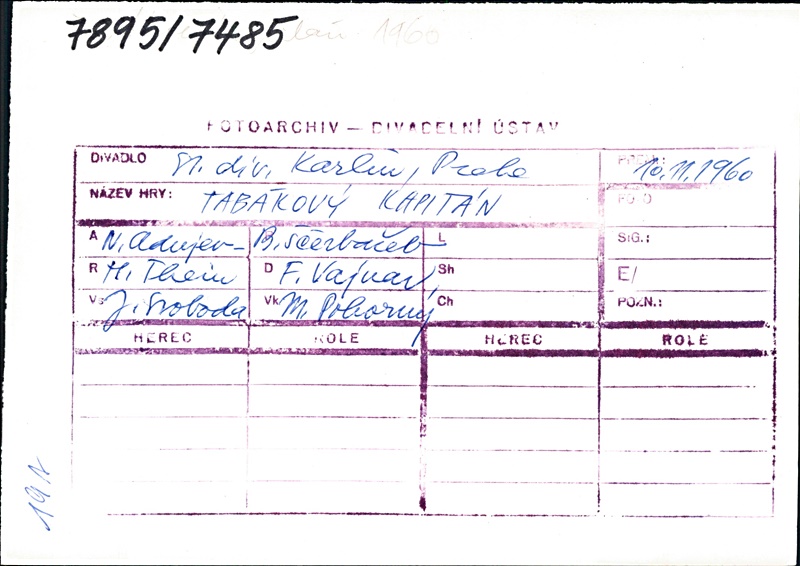 7895/7485
1960
FOTOARCHIV — DIVADELNÍ ÚSTAV
DIVADLO St. div. Karlín, Praha
PREM.: 10.11.1960
NÁZEV HRY: TABÁKOVÝ KAPITÁN
FOTO
A N. Adujev – B. Ščerbačeb
L
SIG.:
R H. Thein
D F. Vajnar
Sh
E/
Vs J. Svoboda
Vk M. Pokorný
Ch
POZN.:
HEREC ROLE HEREC ROLE